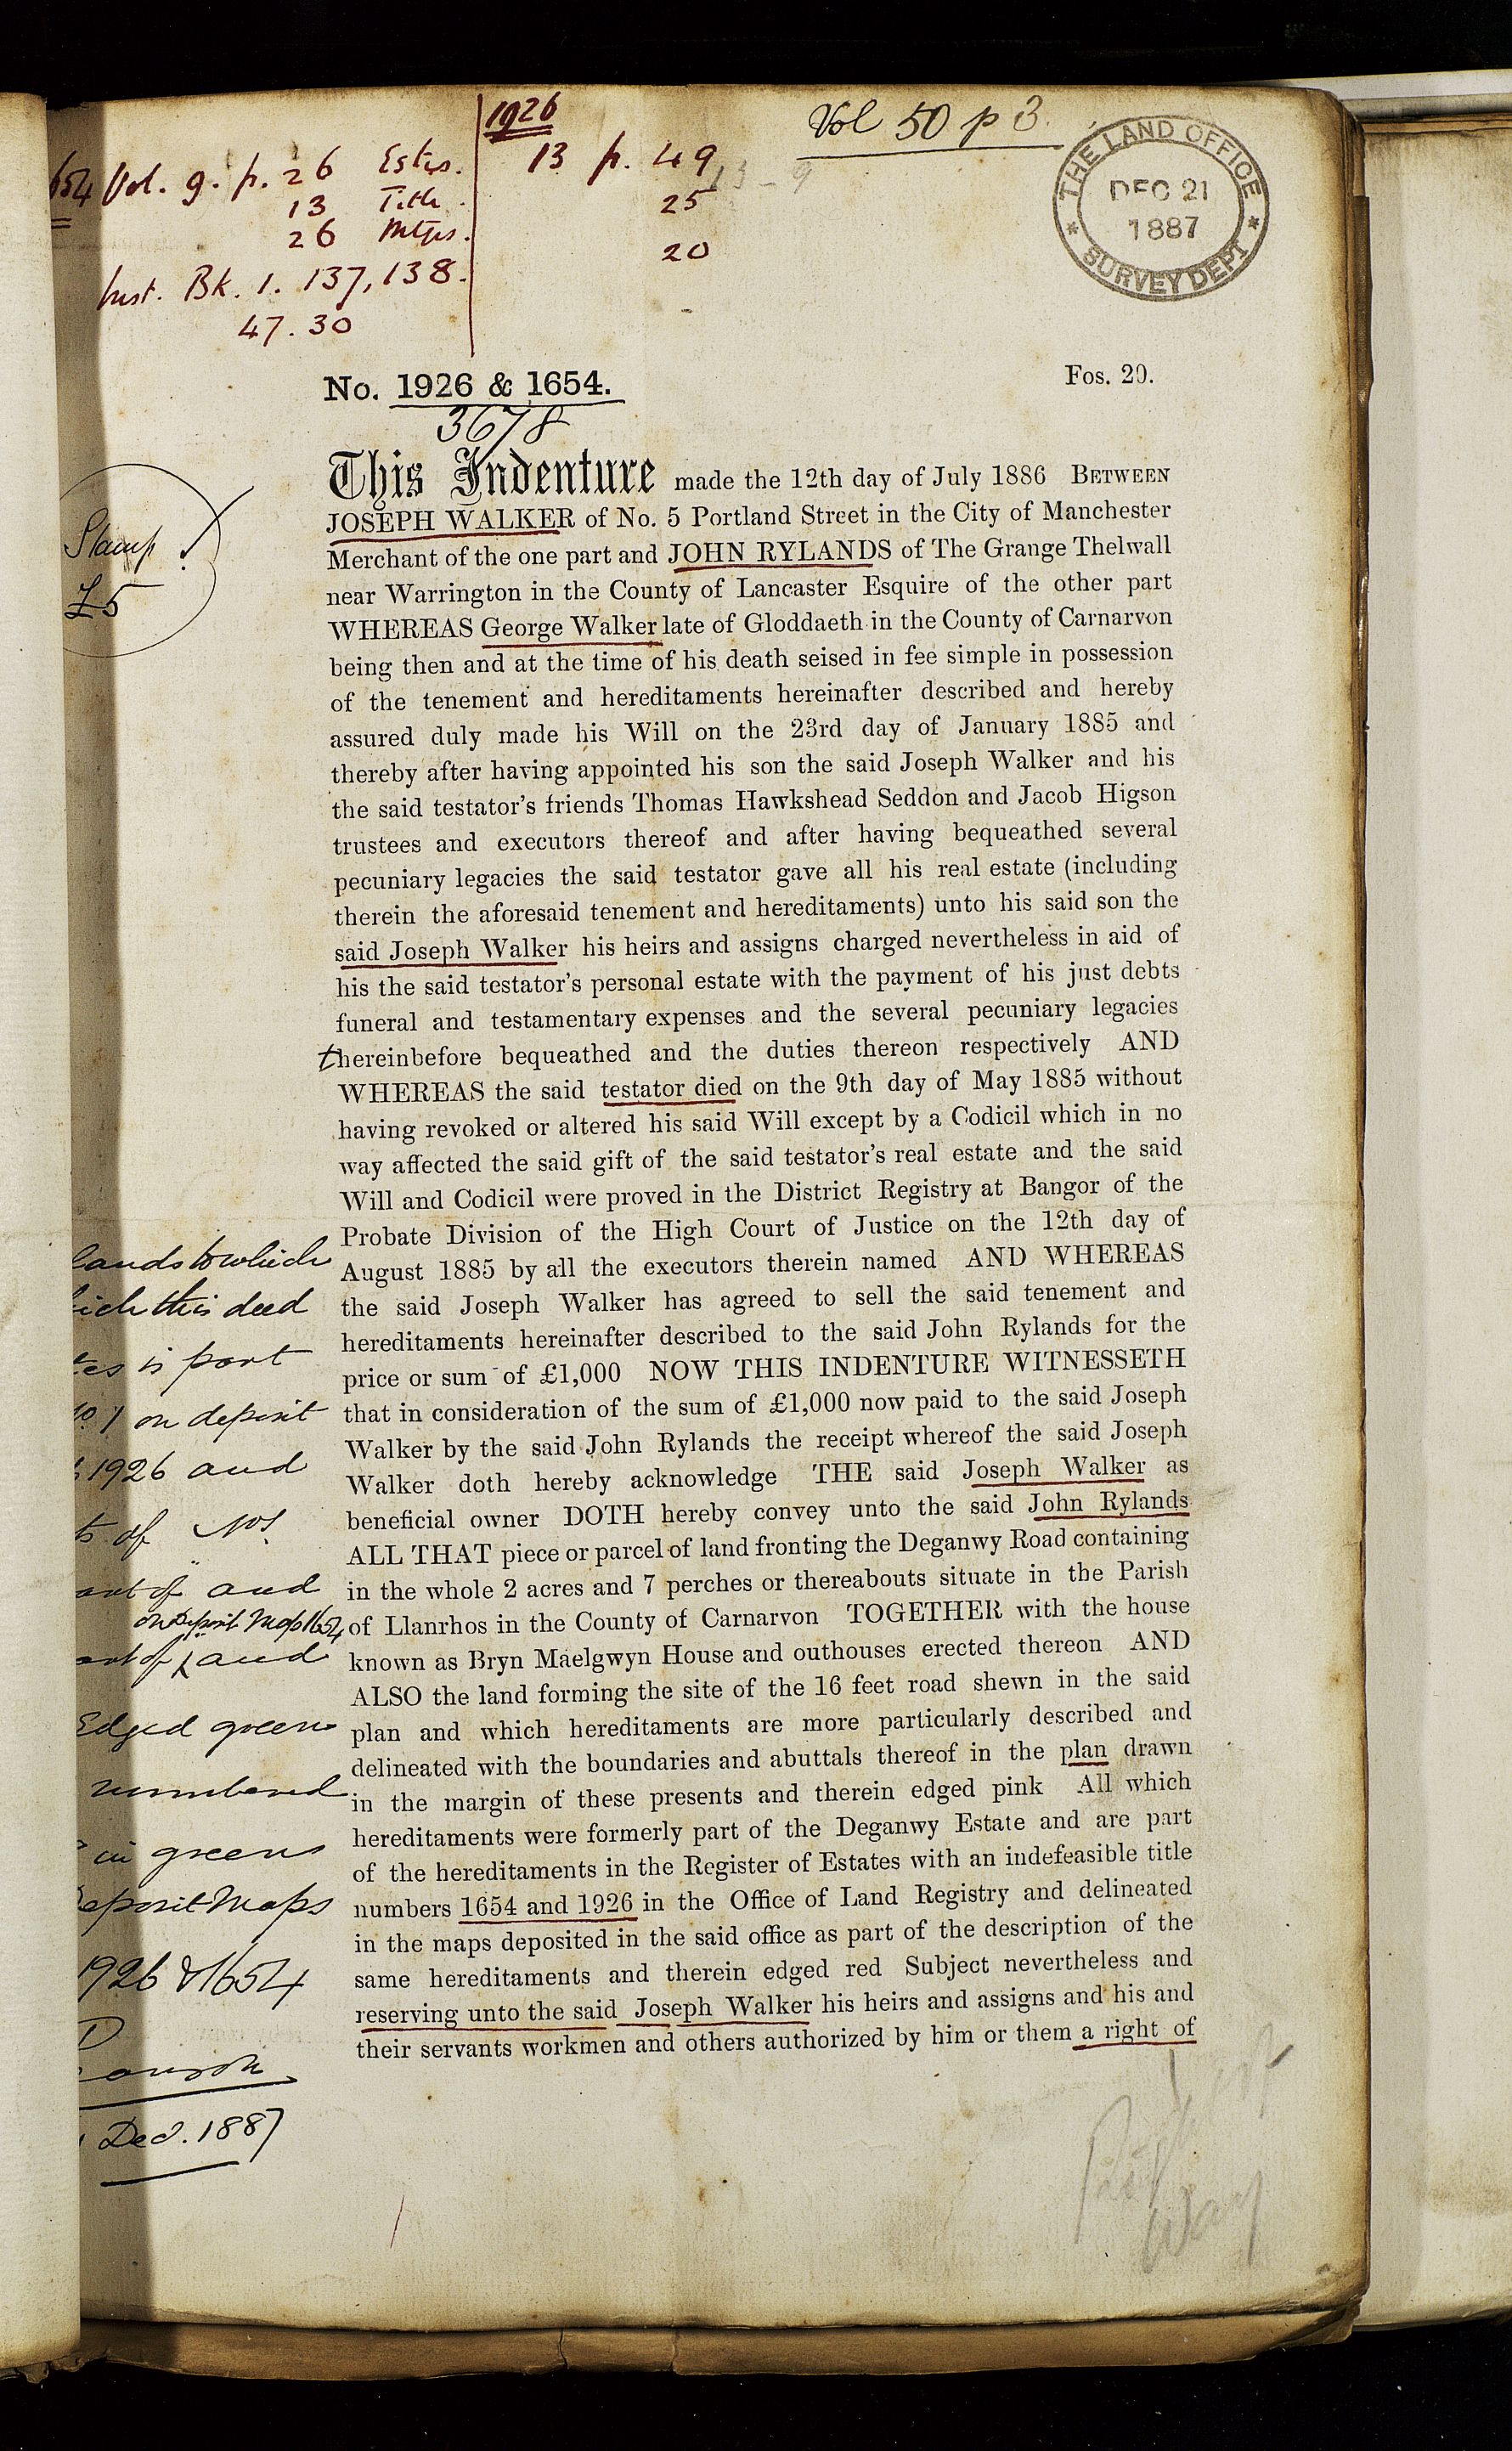 1926
Vol 50 p 3.
654 Vol. 9. p. 26 Ests.
13 Title.
26 Mtges.
Inst. Bk. 1. 137, 138.
47. 30
13 p. 49
25
20
THE LAND OFFICE
DEC 21
1887
SURVEY DEPT
No. 1926 & 1654.
3678
Fos. 20.
Stamp
£5
This Indenture made the 12th day of July 1886 BETWEEN
JOSEPH WALKER of No. 5 Portland Street in the City of Manchester
Merchant of the one part and JOHN RYLANDS of The Grange Thelwall
near Warrington in the County of Lancaster Esquire of the other part
WHEREAS George Walker late of Gloddaeth in the County of Carnarvon
being then and at the time of his death seised in fee simple in possession
of the tenement and hereditaments hereinafter described and hereby
assured duly made his Will on the 23rd day of January 1885 and
thereby after having appointed his son the said Joseph Walker and his
the said testator's friends Thomas Hawkshead Seddon and Jacob Higson
trustees and executors thereof and after having bequeathed several
pecuniary legacies the said testator gave all his real estate (including
therein the aforesaid tenement and hereditaments) unto his said son the
said Joseph Walker his heirs and assigns charged nevertheless in aid of
his the said testator's personal estate with the payment of his just debts
funeral and testamentary expenses and the several pecuniary legacies
thereinbefore bequeathed and the duties thereon respectively AND
WHEREAS the said testator died on the 9th day of May 1885 without
having revoked or altered his said Will except by a Codicil which in no
way affected the said gift of the said testator's real estate and the said
Will and Codicil were proved in the District Registry at Bangor of the
Probate Division of the High Court of Justice on the 12th day of
August 1885 by all the executors therein named AND WHEREAS
the said Joseph Walker has agreed to sell the said tenement and
hereditaments hereinafter described to the said John Rylands for the
price or sum of £1,000 NOW THIS INDENTURE WITNESSETH
that in consideration of the sum of £1,000 now paid to the said Joseph
Walker by the said John Rylands the receipt whereof the said Joseph
Walker doth hereby acknowledge THE said Joseph Walker as
beneficial owner DOTH hereby convey unto the said John Rylands
ALL THAT piece or parcel of land fronting the Deganwy Road containing
in the whole 2 acres and 7 perches or thereabouts situate in the Parish
of Llanrhos in the County of Carnarvon TOGETHER with the house
known as Bryn Maelgwyn House and outhouses erected thereon AND
ALSO the land forming the site of the 16 feet road shewn in the said
plan and which hereditaments are more particularly described and
delineated with the boundaries and abuttals thereof in the plan drawn
in the margin of these presents and therein edged pink All which
hereditaments were formerly part of the Deganwy Estate and are part
of the hereditaments in the Register of Estates with an indefeasible title
numbers 1654 and 1926 in the Office of Land Registry and delineated
in the maps deposited in the said office as part of the description of the
same hereditaments and therein edged red Subject nevertheless and
reserving unto the said Joseph Walker his heirs and assigns and his and
their servants workmen and others authorized by him or them a right of
lands to which
this deed
is part
1 on deposit
1926 and
of Nos
and
on Deposit Map 1654
and
Edged green
numbered
in green
Maps
1926 & 1654
Dec. 1887
Right of
Way